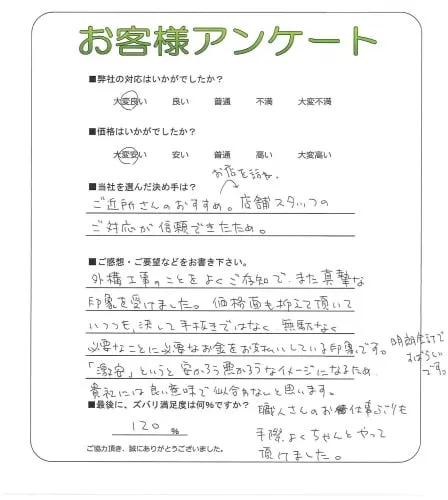 お客様アンケート
■弊社の対応はいかがでしたか？
大変良い 良い 普通 不満 大変不満
■価格はいかがでしたか？
大変安い 安い 普通 高い 大変高い
■当社を選んだ決め手は？
お店を訪ね、
ご近所さんのおすすめ。店舗スタッフの
ご対応が信頼できたため。
■ご感想・ご要望などをお書き下さい。
外構工事のことをよくご存知で、また真摯な
印象を受けました。価格面も抑えて頂いて
いつつも、決して手抜きではなく、無駄なく
必要なことに必要なお金をお支払いしている印象です。
明朗会計で
すばらしい
です。
「激安」というと安かろう悪かろうなイメージになるため、
貴社には良い意味で似合わないと思います。
■最後に、ズバリ満足度は何%ですか？
120 %
職人さんのお仕事ぶりも
手際よくちゃんとやって
頂けました。
ご協力頂き、誠にありがとうございました。